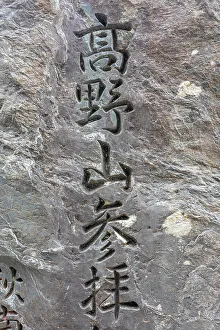 髙野山参拝